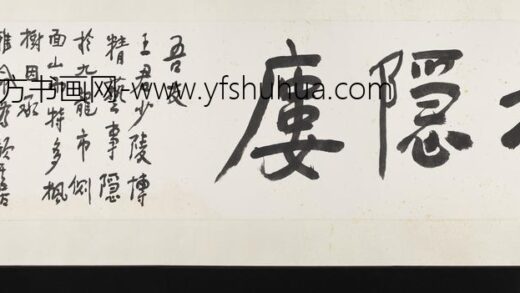 隐廔
吾友
王君少陵博
精藝事隐
於九龍市側
面山特多楓
樹因
方书画网-www.yfshuhua.com